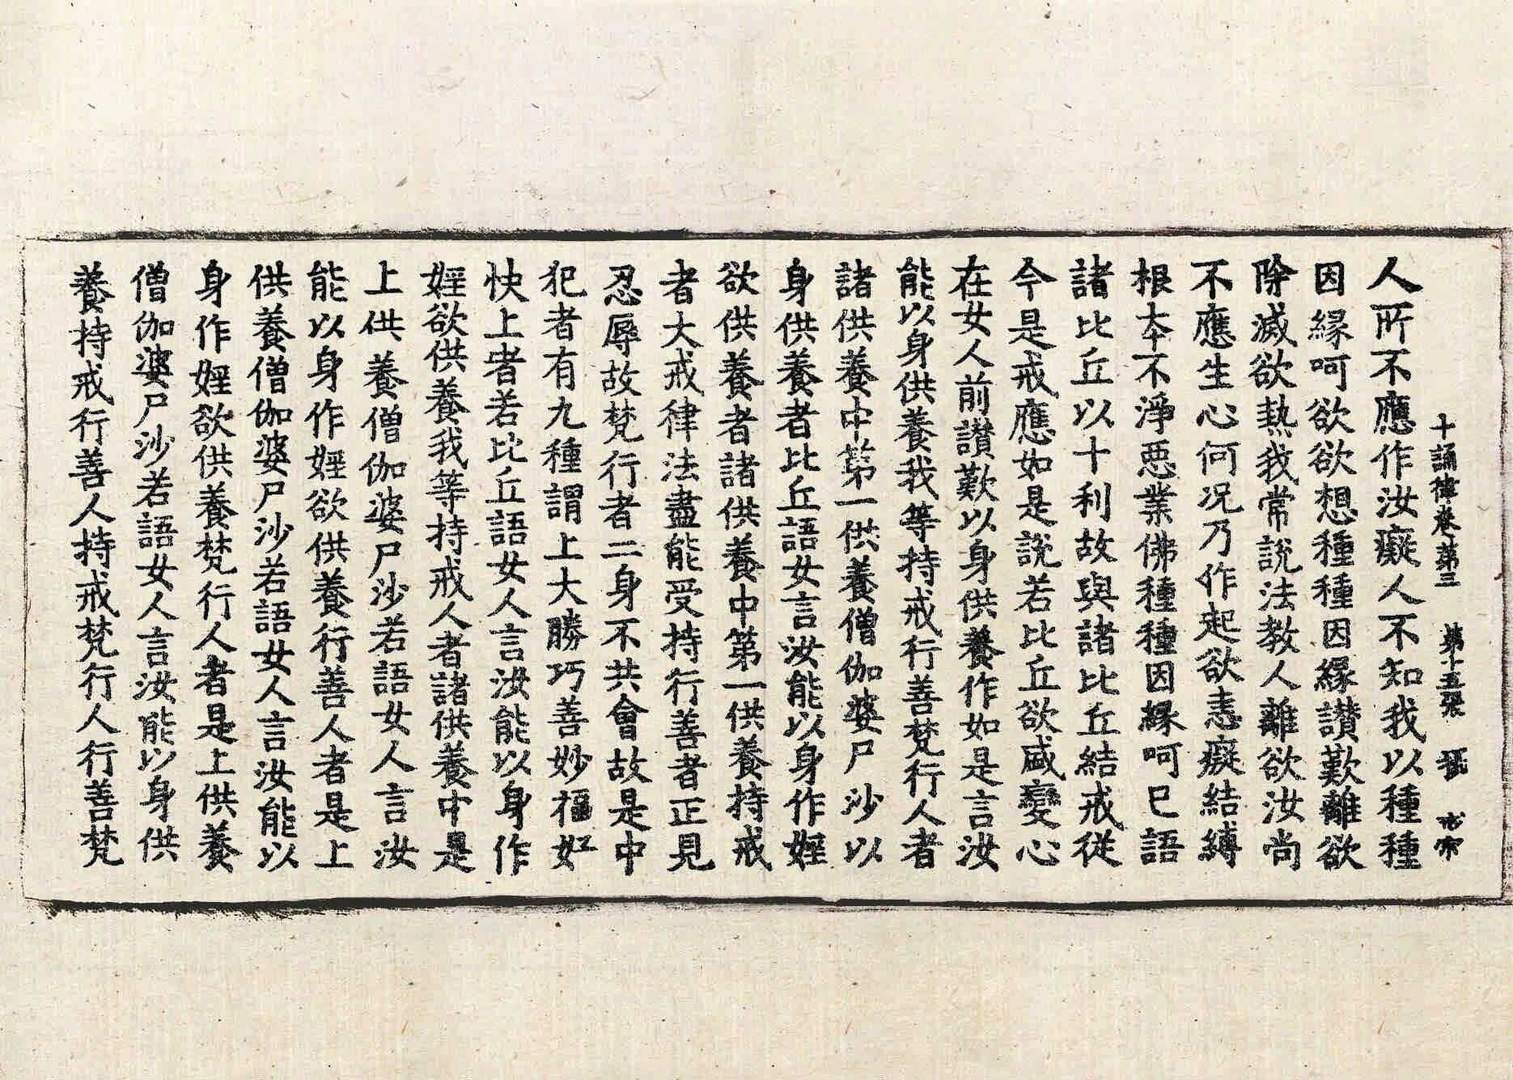 十誦律卷第三 第十五張
人所不應作汝癡人不知我以種種
因緣呵欲欲想種種因緣讃歎離欲
除滅欲熱我常說法教人離欲汝尚
不應生心何况乃作起欲恚癡結縛
根夲不淨惡業佛種種因緣呵已語
諸比丘以十利故與諸比丘結戒從
今是戒應如是說若比丘欲盛變心
在女人前讃歎以身供養作如是言汝
能以身供養我等持戒行善梵行人者
諸供養中第一供養僧伽婆尸沙以
身供養者比丘語女言汝能以身作婬
欲供養者諸供養中第一供養持戒
者大戒律法盡能受持行善者正見
忍辱故梵行者二身不共會故是中
犯者有九種謂上大勝巧善妙福好
快上者若比丘語女人言汝能以身作
婬欲供養我等持戒人者諸供養中是
上供養僧伽婆尸沙若語女人言汝
能以身作婬欲供養行善人者是上
供養僧伽婆尸沙若語女人言汝能以
身作婬欲供養梵行人者是上供養
僧伽婆尸沙若語女人言汝能以身供
養持戒行善人持戒梵行人行善梵